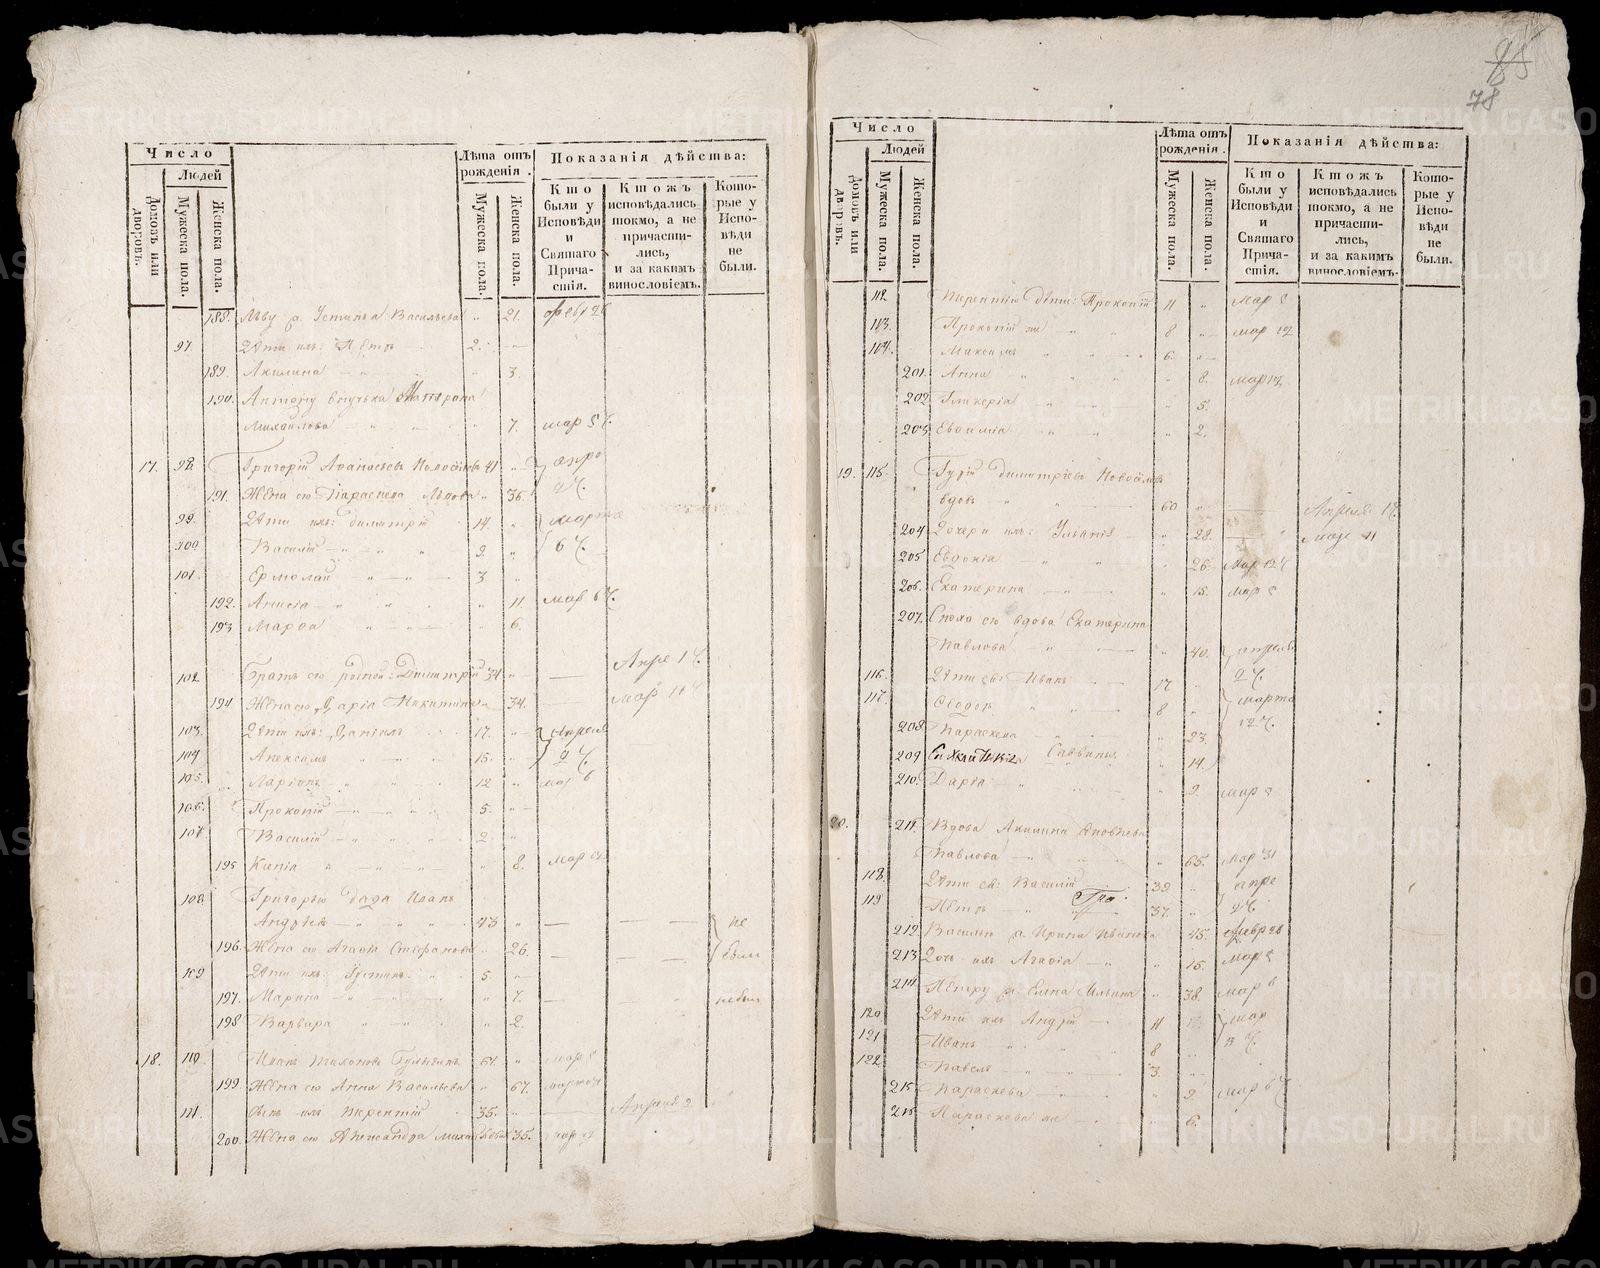 85
78
Число
Людей
Домовъ или дворовъ.
Мужеска пола.
Женска пола.
Лѣта отъ рожденія.
Мужеска пола.
Женска пола.
Показанія дѣйства:
Кто были у Исповѣди и Святаго Причастія.
Ктожъ исповѣдались токмо, а не причастились, и за какимъ винословіемъ.
Которые у Исповѣди не были.
188. Льву Устинья Васильева 21. февр 26
97. Дѣти ихъ: Петръ 2.
189. Акилина 3.
190. Антону внучька Матрона
Михайлова 7. мар 5 ч.
17. 98. Григорій Аѳанасьевъ 41 апре
191. Жена его Параскева Львова 36. 2 ч.
99. Дѣти ихъ: Димитрій 14. марта
100 Василій 9. 6 ч.
101. Ермолай 3
192. Анисія 11. мар 6 ч.
193 Марѳа 6.
102. Братъ его родной: Димитрій 34 Апре 1 ч.
194 Жена его Дарія Никитина 34. мар 11 ч
103. Дѣти ихъ: Даніилъ 17. апреля
104 Алексѣй 15. 2 ч.
105. Ларіонъ 12 мар 6
106. Прокопій 5.
107. Василій 2.
195 Ксенія 8. мар
108. Григорью дядя Иванъ
Андрѣевъ 43 не
196. Жена его Агаѳія Стефанова 26. были
109 Дѣти ихъ: Устинъ 5
197. Марина 7. небыл
198 Варвара 2.
18. 110. Иванъ Тихоновъ 61. мар 8
199 Жена его Анна Васильева 67. марта
111. сынъ ихъ Терентій 35. Апреля 2
200. Жена его Александра Михайлова 35. мар
Число
Людей
Домовъ или дворовъ.
Мужеска пола.
Женска пола.
Лѣта отъ рожденія.
Мужеска пола.
Женска пола.
Показанія дѣйства:
Кто были у Исповѣди и Святаго Причастія.
Ктожъ исповѣдались токмо, а не причастились, и за какимъ винословіемъ.
Которые у Исповѣди не были.
112. Терентію дѣти: Прокопій 11 мар 8
113. Прокопій же 8 мар 12
114. Максимъ 6.
201. Анна 8. мар 12
202. Гликерія 5.
203. Евѳимія 2.
19. 115. Гурій Димитріевъ
вдовъ 60 Апреля 1 ч
204 Дочери ихъ: Ульянія 28. мар 11
205 Евдокія 26. мар 12 ч
206. Екатерина 15. мар 8
207. Сноха его вдова Екатерина
Павлова 40. апреля
116. Дѣти ея: Иванъ 17 2 ч.
117. Ѳедоръ 8 марта
208. Параскева 23. 12 ч.
209 Синклитикія Саввины 14.
210. Дарія 9. мар 8
20. 211. Вдова Акилина Яковлева
Павлова 65. мар 31
118. Дѣти ея: Василій 39. апре
119 Петръ 37. 2 ч
212. Василью Ирина Иванова 45. февр 26
213 Дочь ихъ Агаѳія 15. мар 8
214 Петру Елена Ильина 38. мар 6
120 Дѣти ихъ Андрей 11 мар
121 Иванъ 8 ч.
122 Павелъ 3.
215 Параскева 9 мар 6 ч
216 Параскева же 6.
METRIKI.GASO-URAL.RU